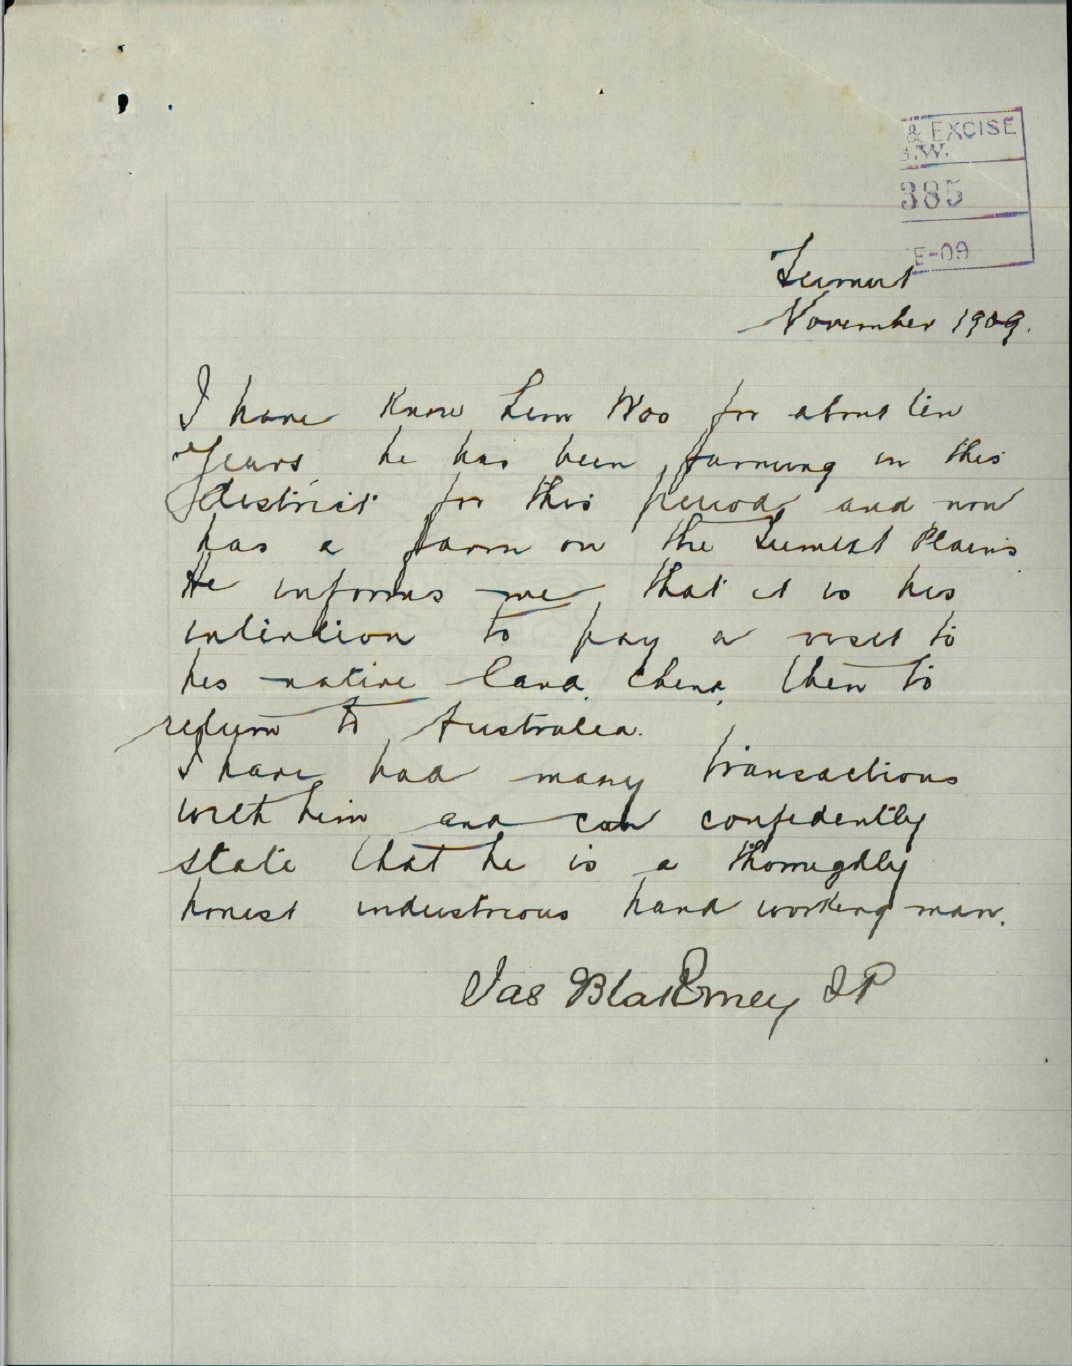 & EXCISE
.W.
385
E-09
Tumut
November 1909.
I have know Lem Woo for about ten
years, he has been farming in this
district for this period, and now
has a farm on the Tumut Plains
He informs me, that it is his
intention to pay a visit to
his native land, China, then to
return to Australia.
I have had many transactions
with him, and can confidently
state that he is a
honest industrious hard working man.
Jas Blakeney JP